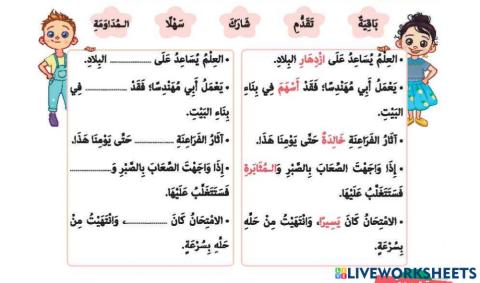 بَاقِيَةٌ تَقَدُّمِ شَارَكَ سَهْلًا الـمُدَاوَمَةِ
• العِلْمُ يُسَاعِدُ عَلَى ازْدِهَارِ البِلادِ.
• يَعْمَلُ أَبِي مُهَنْدِسًا؛ فَقَدْ أَسْهَمَ فِي بِنَاءِ
البَيْتِ.
• آثَارُ الفَرَاعِنَةِ خَالِدَةٌ حَتَّى يَوْمِنَا هَذَا.
• إِذَا وَاجَهْتَ الصِّعَابَ بِالصَّبْرِ وَالـمُثَابَرةِ
فَسَتَتَغَلَّبُ عَلَيْهَا.
• الامْتِحَانُ كَانَ يَسِيرًا، وَانْتَهَيْتُ مِنْ حَلِّهِ
بِسُرْعَةٍ.
• العِلْمُ يُسَاعِدُ عَلَى ............ البِلادِ.
• يَعْمَلُ أَبِي مُهَنْدِسًا؛ فَقَدْ ............ فِي
بِنَاءِ البَيْتِ.
• آثَارُ الفَرَاعِنَةِ ............ حَتَّى يَوْمِنَا هَذَا.
• إِذَا وَاجَهْتَ الصِّعَابَ بِالصَّبْرِ وَ............
فَسَتَتَغَلَّبُ عَلَيْهَا.
• الامْتِحَانُ كَانَ ............ وَانْتَهَيْتُ مِنْ
حَلِّهِ بِسُرْعَةٍ.
LIVEWORKSHEETS